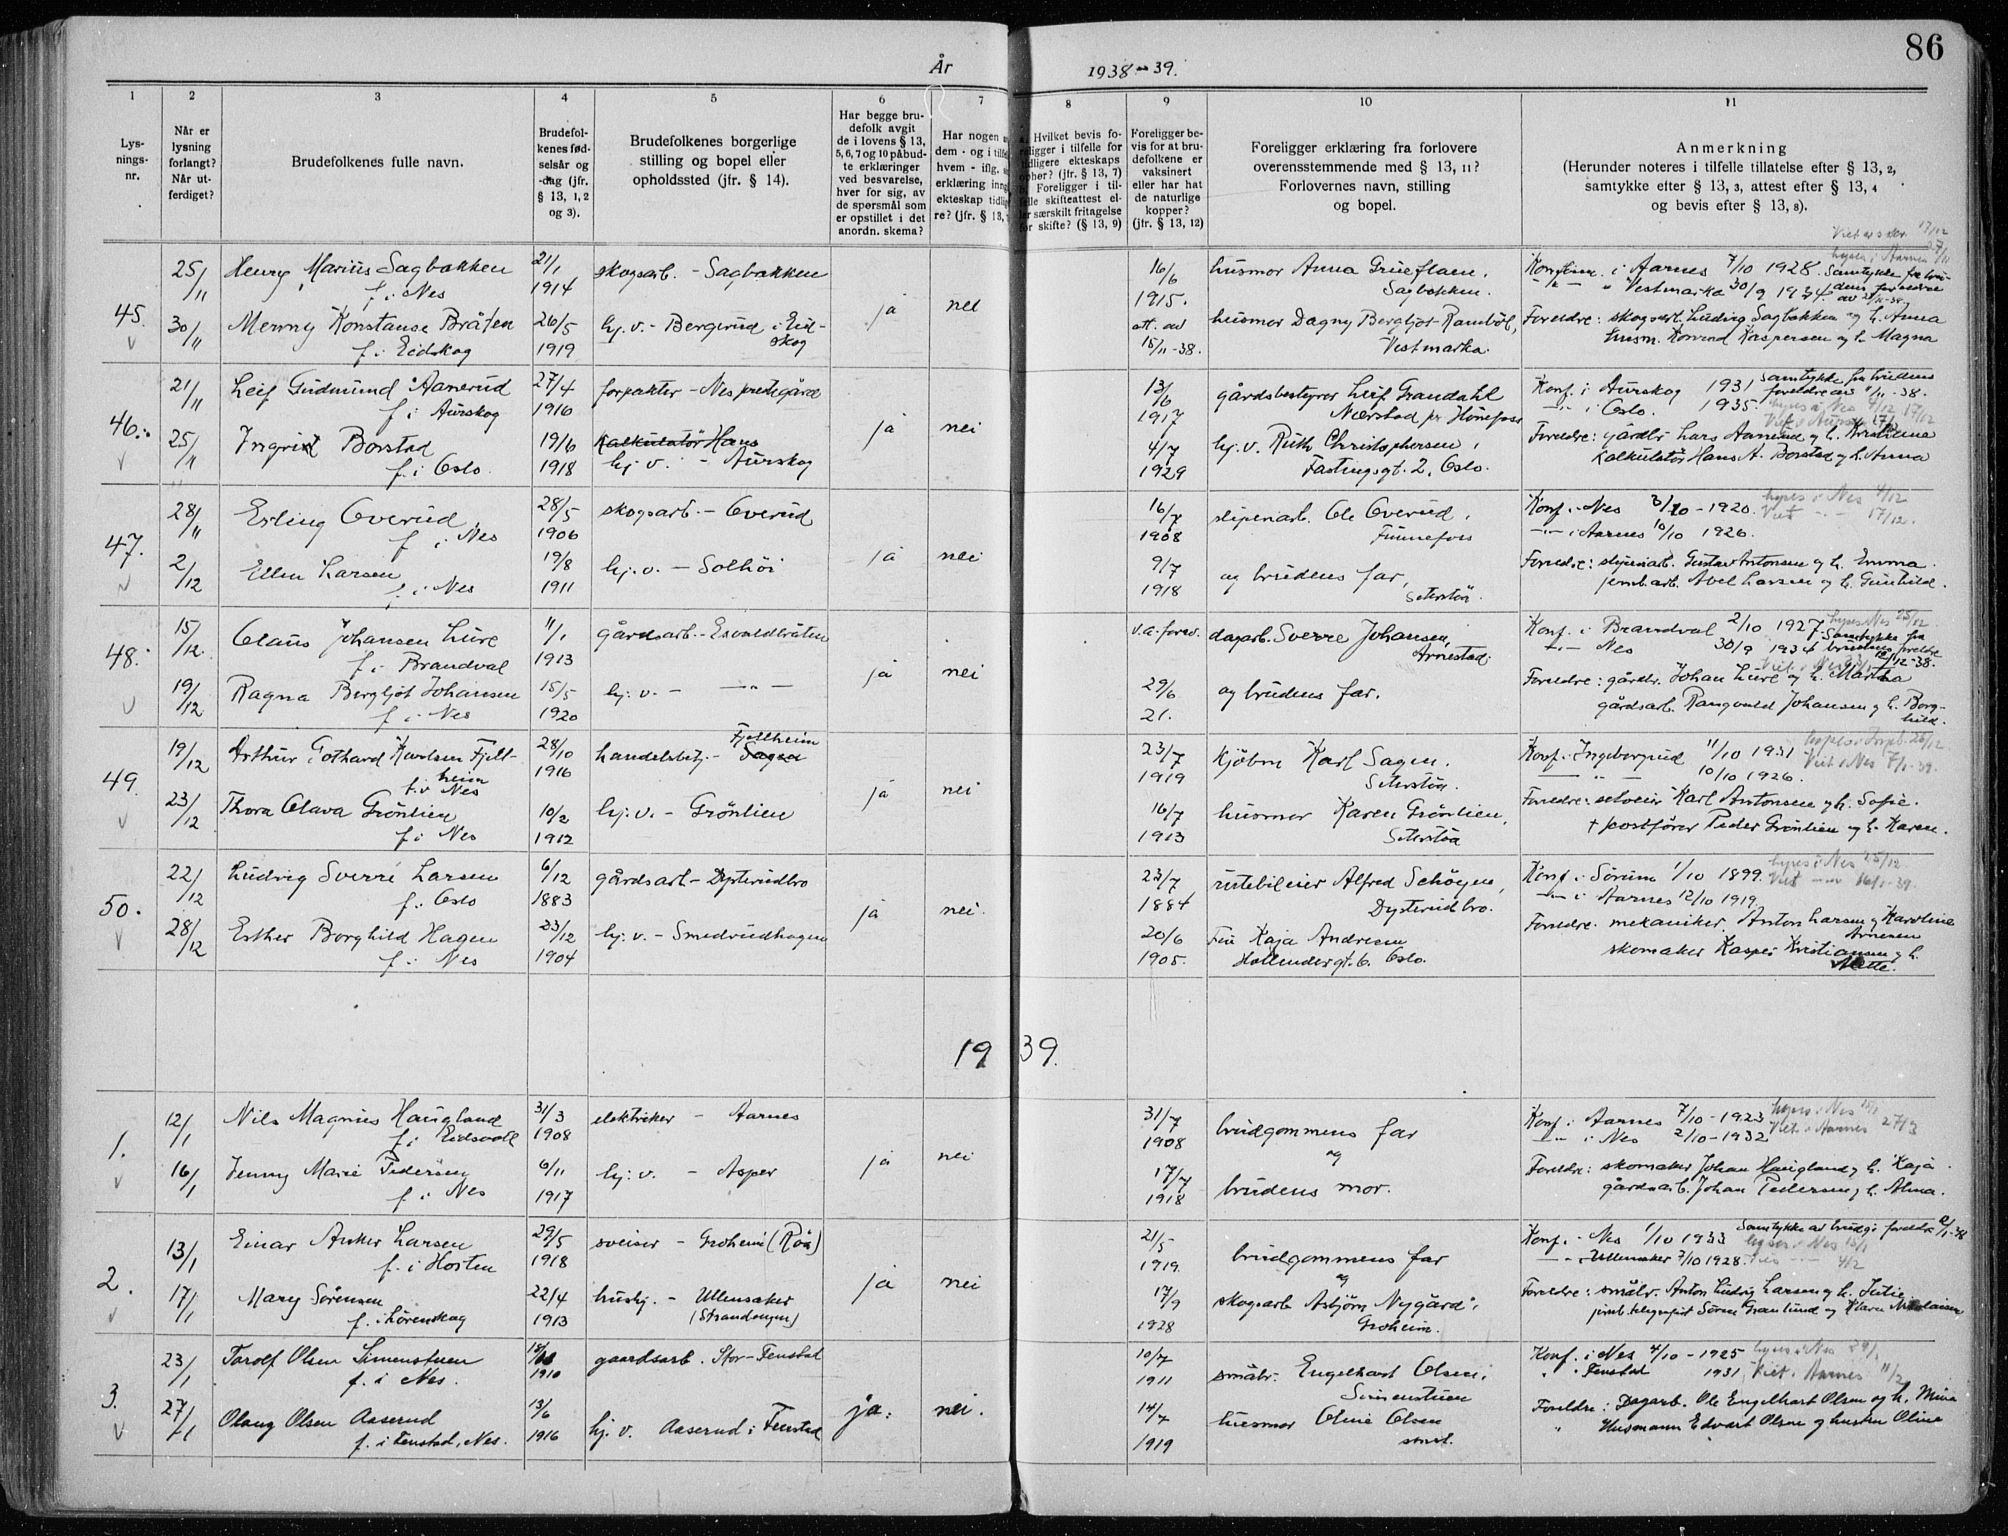 86
År 1938-39.
1 2 3 4 5 6 7 8 9 10 11
Lysnings-nr.
Når er lysning forlangt? Når utferdiget?
Brudefolkenes fulle navn.
Brudefolkenes fødselsår og -dag (jfr. § 13, 1, 2 og 3).
Brudefolkenes borgerlige stilling og bopel eller opholdssted (jfr. § 14).
Har begge brudefolk avgit de i lovens § 13, 5, 6, 7 og 10 påbudte erklæringer ved besvarelse, hver for sig, av de spørsmål som er opstillet i det anordn. skema?
Har nogen
dem - og i
hvem - iflg.
erklæring inng
ekteskap
re? (jfr. § 13,
Hvilket bevis fo-
ligger i tilfelle for
tidligere ekteskaps
ophør? (jfr. § 13, 7)
Foreligger i til-
felle skifteattest el-
ler særskilt fritagelse
for skifte? (§ 13, 9)
Foreligger bevis for at brudefolkene er vaksinert eller har hat de naturlige kopper? (jfr. § 13, 12)
Foreligger erklæring fra forlovere overensstemmende med § 13, 11? Forlovernes navn, stilling og bopel.
Anmerkning
(Herunder noteres i tilfelle tillatelse efter § 13, 2, samtykke efter § 13, 3, attest efter § 13, 4 og bevis efter § 13, 8).
45. 25/11 Henry Marius Sagbakken 21/1 skogsarb. - Sagbakken 16/6 husmor Anna Grueflaen, Konfirm. i Aarnes 7/10 1928. Samtykke fra bru-
f. i Nes 1914 1915. Sagbakken. -"- " Vestmarka 30/9 1934 dens foreldre
30/11 Menny Konstanse Bråten 26/5 hj.v. - Bergerud i Eid- ja nei att. av husmor Dagny Bergljot Foreldre: skogsarb. Ludvig Sagbakken og h. Anna
f. i Eidskog 1919 skog 15/11-38. Vestmarka. husm. Konrad Kaspersen og h. Magna
46. 21/11 Leif Gudmund Aanerud 27/4 forpakter - Nes prestegård 13/6 gårdsbestyrer Leif Grandahl Konf. i Aurskog 1931 Samtykke fra brudens
f. i Aurskog 1916 1917 Nærstad pr Hønefoss -"- i Oslo. 1935. foreldre av 11/11-38.
25/11 Ingrid Borstad 19/6 kalkulatør Hans ja nei 4/7 hj. v. Ruth Christophersen, Foreldre: gårdbr. Lars Aanerud og h. Kristiane
f. i Oslo. 1918 hj. v. - Aurskog 1929 Fastingsgt. 2, Oslo. Kalkulatør Hans A. Borstad og h. Anna
47. 28/11 Erling Overud 28/5 skogsarb - Overud 16/7 sliperiarb. Ole Overud, Konf. i Nes 3/10 - 1920. lyses i Nes 4/12
f. i Nes 1906 1908 Funnefoss -"- i Aarnes 10/10 1926. Viet -"- 17/12.
2/12 Ellen Larsen 19/8 hj. v. - Solhöi ja nei 9/7 og brudens far, Foreldre: sliperiarb. Gustav Antonsen og h. Emma.
f. i Nes 1911 1918 Seterstöa. jernb.arb. Axel Larsen og h. Gunhild.
48. 15/12. Claus Johansen Lure 11/1 gårdsarb. - Esvaldbråten v.a. forev. dagarb. Sverre Johansen, Konf. i Brandval 2/10 1927. lyses Nes 25/12
f. i Brandval 1913 Arnestad. -"- Nes 30/9 1934 Samtykke fra brudens foreldre 12/12-38.
19/12 Ragna Bergljot Johansen 15/5 hj. v. - -"- ja nei 29/6 og brudens far. Foreldre: gårdbr. Johan Lure og h. Martha
f. i Nes 1920 21. gårdsarb. Rangvald Johansen og h. Borghild.
49. 19/12 Arthur Gothard Karlsen Fjell- 28/10 handelsbetj. - Sagen Fjellheim 23/7 kjöbm Karl Sagen. Konf. i Ingeborgrud 11/10 1931
heim f. i Nes 1916 1919 Seterstöa. -"- 10/10 1926. Viet i Nes 7/1-39.
23/12 Thora Olava Grönlien 10/2 hj. v. - Grönlien ja nei 16/7 husmor Karen Grönlien, Foreldre: selveier Karl Antonsen og h. Sofie.
f. i Nes 1912 1913 Seterstöa + postförer Peder Grönlien og h. Karen.
50. 22/12 Ludvig Sverre Larsen 6/12 gårdsarb - Dysterudbro 23/7 rutebileier Alfred Schöyen, Konf. i Sörum 1/10 1899. lyses i Nes 25/12.
f. i Oslo 1883 1884 Dysterudbro. -"- i Aarnes 12/10 1919. Viet -"- 16/1-39.
28/12 Esther Borghild Hagen 23/12 hj. v. - Smedrudhagen ja nei. 20/6 Fru Kaja Andresen Foreldre: mekaniker Anton Larsen og Karoline Arnesen
f. i Nes 1904 1905. Hollendergt. 6. Oslo. skomaker Kasper Kristiansen og h. Mette.
1939.
1. 12/1 Nils Magnus Haugland 31/3 elektriker - Aarnes 31/7 brudgommens far Konf. i Aarnes 7/10-1923 lyses i Nes 15/1
f. i Eidsvoll 1908 1908 og -"- i Nes 2/10-1932 Viet i Aarnes 27/3
16/1 Jenny Marie Pedersen 6/11 hj. v. - Asper ja nei 17/7 brudens mor. Foreldre: skomaker Johan Haugland og h. Kaja.
f. i Nes 1917 1918 gårdsarb. Johan Pedersen og h. Alma.
2. 13/1 Einar Anker Larsen 29/5 sveiser - Groheim (Röa) 21/5 brudgommens far Konf. i Nes 1/10 1933 Samtykke av brudg. foreldre
f. i Horten 1918 1919. og -"- Ullensaker 7/10 1928. lyses i Nes 15/1 4/2
17/1 Mary Sörensen 22/4 hushj. - Ullensaker ja nei 17/9 skogsarb Asbjörn Nygård, Foreldre: småbr. Anton Ludvig Larsen og h. Julie
f. i Lörenskog 1913 (Strandengen) 1928 Groheim. jernb.telegrafist Sören Granlund og Klara Nikolaisen
3. 23/1 Torolf Olsen Simenstuen gaardsarb. Stor-Fenstad 10/7 småbr. Engelhart Olsen, Konf. i Nes 4/10-1925 lyses i Nes 29/1
f. i Nes. 1910 1911 Simenstuen " Fenstad 1931, Viet i Aarnes 11/2
27/1 Olaug Olsen Aaserud 13/6 hj. v. Aaserud i Fenstad ja. nei. 14/7 husmor Oline Olsen Foreldre: Dagarb. Ole Engelhart Olsen og h. Mina
f. i Fenstad, Nes. 1916 1919 smst. " Husmann Edvart Olsen og hustru Oline